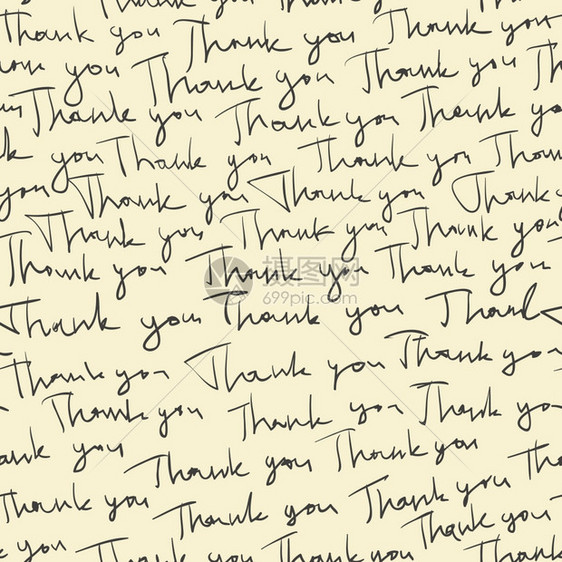 Thank you Thank you Thank you
you Thank you Thank you Th
Thank you Thank you Thank you
you Thank you Thank you Than
you Thank you Thank you Thank
Thank you Thank you Thank you
Thank you Thank you Thank you
摄图网
699pic.com
Thank you Thank you Thank
Thank you Thank you Thank you
Thank you Thank you Thank yo
you Thank you Thank you
Thank you Thank you Thank you Th
Thank you
you Thank you Thank you